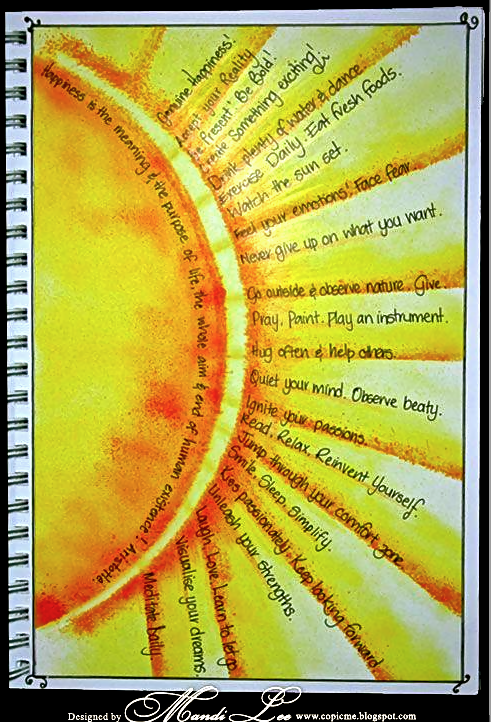 Genuine Happiness!
Accept your Reality
Be Present! Be Bold!
Create Something exciting!
Drink plenty of water & dance
Exercise Daily. Eat fresh foods.
Watch the sun set.
Feel your emotions! Face fear
Never give up on what you want.
Go outside & observe nature. Give.
Pray. Paint. Play an instrument.
Hug often & help others.
Quiet your mind. Observe beaty.
Ignite your passions.
Read. Relax. Reinvent Yourself.
Jump through your comfort zone
Smile. Sleep. Simplify.
Kiss passionately. Keep looking forward
Unleash your strengths.
Laugh, Love, Learn to let go
Visualise your dreams.
Meditate Daily
Happiness is the meaning & the purpose of life, the whole aim & end of human existence! Aristotle
Designed by Mandi Lee www.copicme.blogspot.com